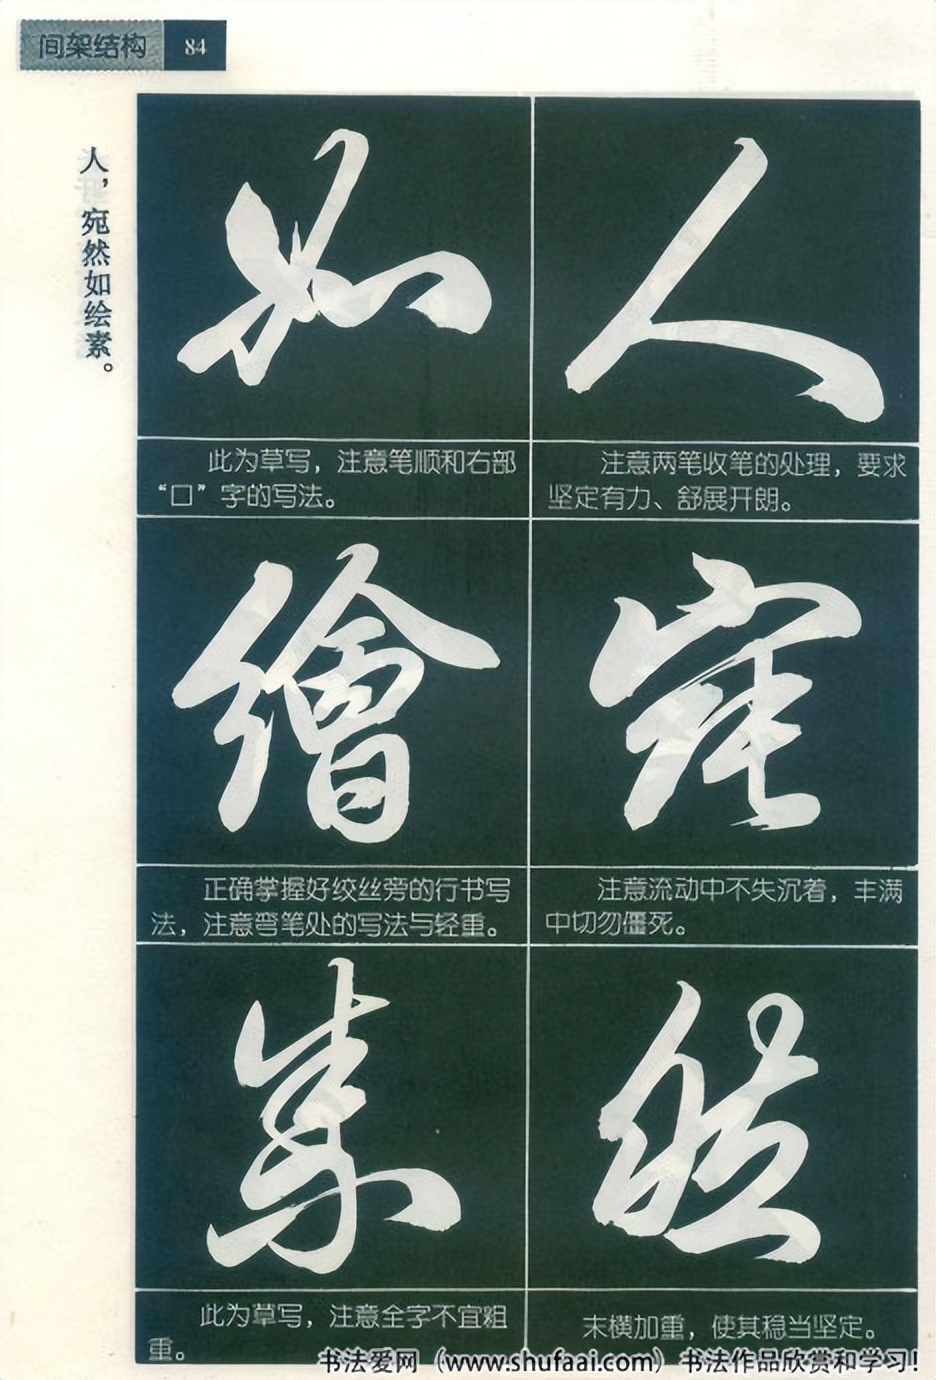 间架结构 84
人，宛然如绘素。
人
注意两笔收笔的处理，要求
坚定有力、舒展开朗。
宛
注意流动中不失沉着，丰满
中切勿僵死。
然
末横加重，使其稳当坚定。
如
此为草写，注意笔顺和右部
“口”字的写法。
繪
正确掌握好绞丝旁的行书写
法，注意弯笔处的写法与轻重。
素
此为草写，注意全字不宜粗
重。
书法爱网（www.shufaai.com）书法作品欣赏和学习！